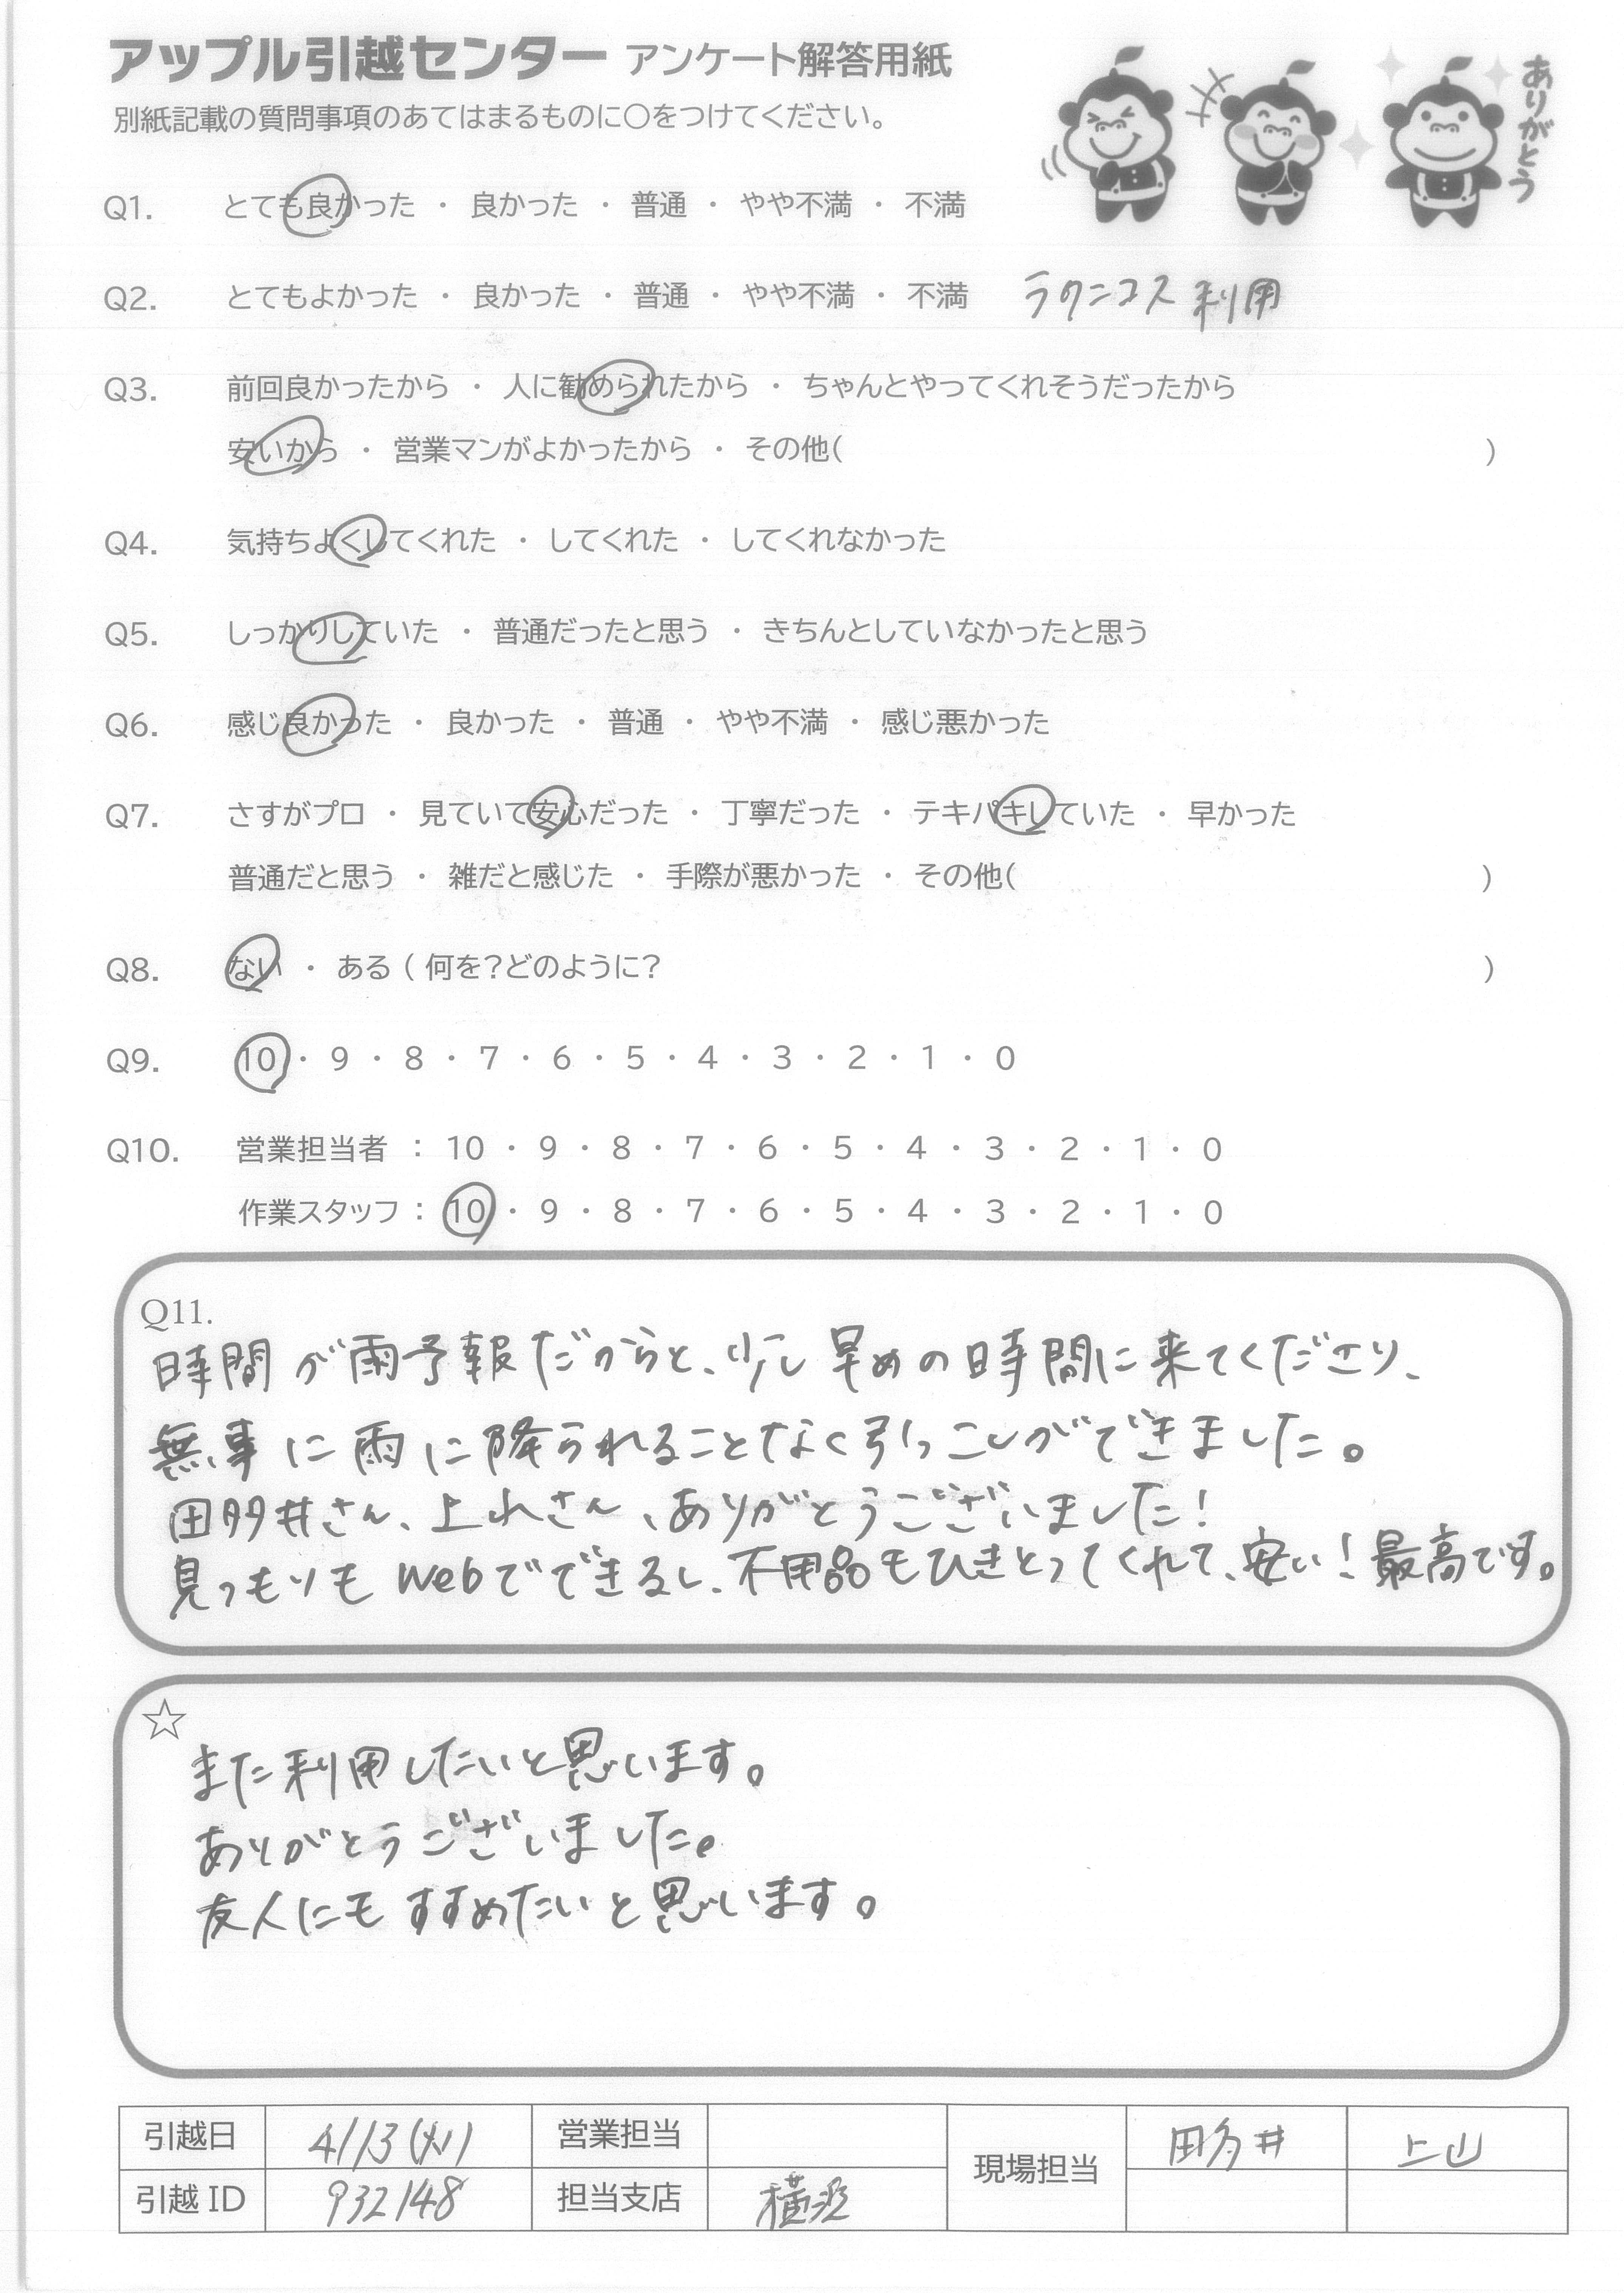 アップル引越センター アンケート解答用紙
ありがとう
別紙記載の質問事項のあてはまるものに〇をつけてください。
Q1. とても良かった ・ 良かった ・ 普通 ・ やや不満 ・ 不満
Q2. とてもよかった ・ 良かった ・ 普通 ・ やや不満 ・ 不満 ラクニコス利用
Q3. 前回良かったから ・ 人に勧められたから ・ ちゃんとやってくれそうだったから
安いから ・ 営業マンがよかったから ・ その他( )
Q4. 気持ちよくしてくれた ・ してくれた ・ してくれなかった
Q5. しっかりしていた ・ 普通だったと思う ・ きちんとしていなかったと思う
Q6. 感じ良かった ・ 良かった ・ 普通 ・ やや不満 ・ 感じ悪かった
Q7. さすがプロ ・ 見ていて安心だった ・ 丁寧だった ・ テキパキしていた ・ 早かった
普通だと思う ・ 雑だと感じた ・ 手際が悪かった ・ その他( )
Q8. ない ・ ある ( 何を?どのように? )
Q9. 10 ・ 9 ・ 8 ・ 7 ・ 6 ・ 5 ・ 4 ・ 3 ・ 2 ・ 1 ・ 0
Q10. 営業担当者 : 10 ・ 9 ・ 8 ・ 7 ・ 6 ・ 5 ・ 4 ・ 3 ・ 2 ・ 1 ・ 0
作業スタッフ : 10 ・ 9 ・ 8 ・ 7 ・ 6 ・ 5 ・ 4 ・ 3 ・ 2 ・ 1 ・ 0
Q11.
時間が雨予報だからと、少し早めの時間に来てくださり、
無事に雨に降られることなく引っこしができました。
田多井さん、上山さん、ありがとうございました!
見つもりもwebでできるし、不用品もひきとってくれて、安い!最高です。
☆
また利用したいと思います。
ありがとうございました。
友人にもすすめたいと思います。
引越日 4/13(火) 営業担当 現場担当 田多井 上山
引越ID 932148 担当支店 横浜